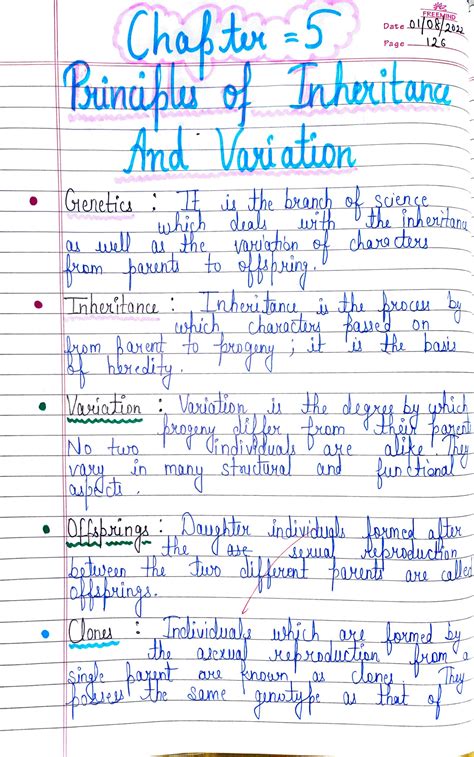 FREEMIND
Date 01/08/2022
Page 126
Chapter = 5
Principles of Inheritance
And Variation
Genetics : It is the branch of science
which deals with the inheritance
as well as the variation of characters
from parents to offspring.
Inheritance : Inheritance is the process by
which characters passed on
from parent to progeny ; it is the basis
of heredity.
Variation : Variation is the degree by which
progeny differ from their parent
No two individuals are alike. They
vary in many structural and functional
aspects.
Offsprings : Daughter individuals formed after
the sexual reproduction
between the two different parents are called
offsprings.
Clones : Individuals which are formed by
the asexual reproduction from a
single parent are known as clones. They
possess the same genotype as that of